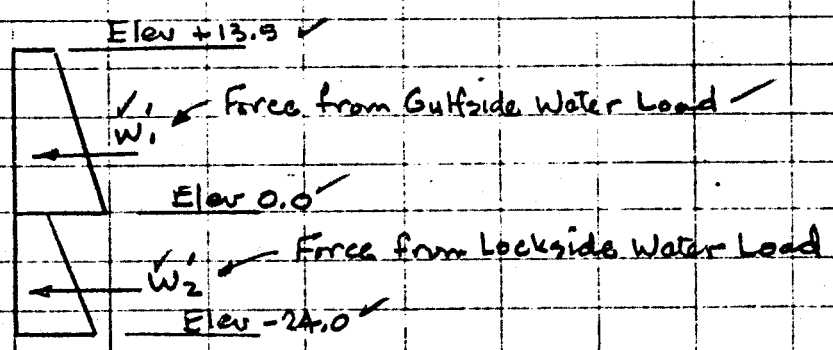 Elev +13.5 ✓
✓
W₁' Force from Gulfside Water Load ✓
Elev 0.0 ✓
✓
W₂' Force from Lockside Water Load
Elev -24.0 ✓